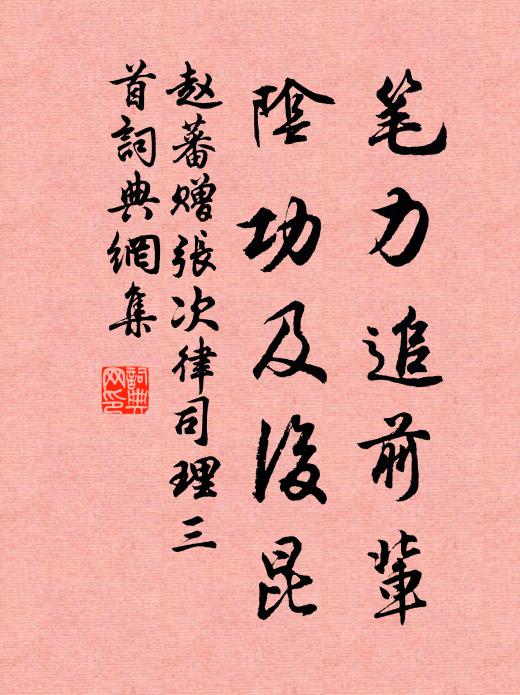 笔力追前輩
陰功及後昆
赵蕃赠張次律司理三
首詞典網集
詞典
网印